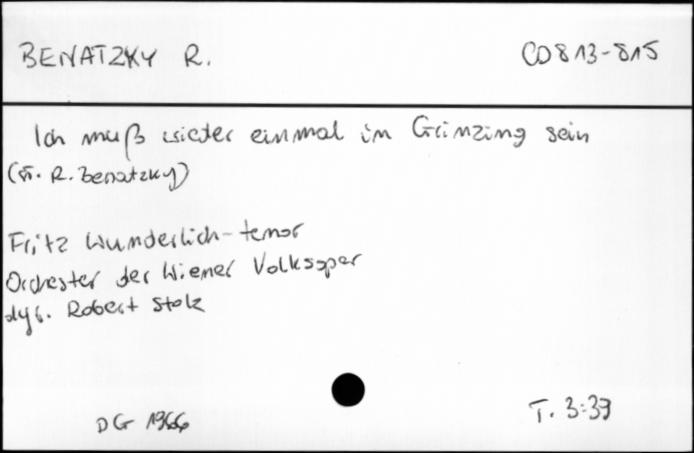 BENATZKY R.
CD 813-815
Ich muß wieder einmal in Grinzing sein
(sł. R. Benatzky)
Fritz Wunderlich - tenor
Orchester der Wiener Volksoper
dyr. Robert Stolz
DG 1966
T. 3:37